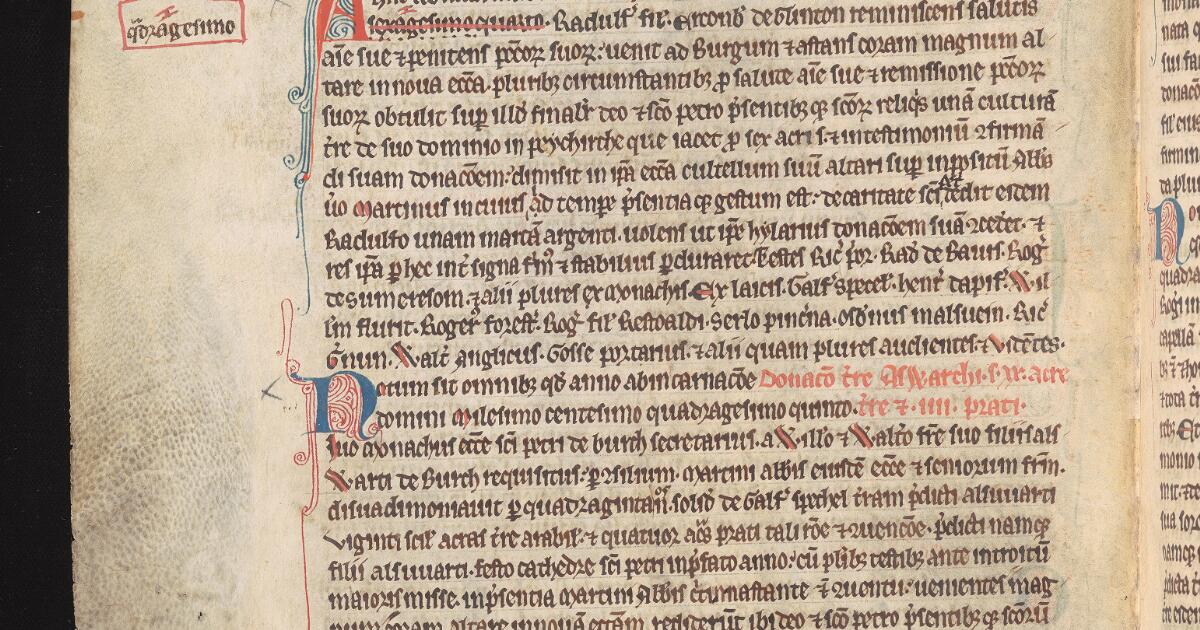 qᷓdragesimo
sexagesimoquarto. Radulf' fil' de Glinton reminiscens salutis
aīe sue ⁊ penitens pcc̄oꝝ suoꝝ: uenit ad Burgum ⁊ astans coram magnum al
tare in noua ecc̄a. pluribꝫ circumstantibꝫ ꝓ salute aīe sue ⁊ remissione pcc̄oꝝ
suoꝝ obtulit suꝑ illđ finalit̄ deo ⁊ sc̄o petro p̄sentibꝫ qꝫ sc̄oꝝ reliqs unā culturā
t̄re de suo dominio in peychirche que iacet ꝓ sex acris: ⁊ in testimoniū ⁊ firmā
di suam donac̄oem: dimisit in ip̄a ecc̄a cultellum suū altari suꝑ inpositū Abb̄s
ůo Martinus in cuius ad tempꝰ p̄sentia qꝫ gestum est: de caritate sc̄i dedit eidem
Radulfo unam marcā argenti. uolens ut ip̄e hylarius donac̄oem suā ꝯcederet. ⁊
res ip̄a ꝑ hec int̄signa firmꝰ ⁊ stabilius ꝑduraret. Testes Ric̄ p̄or. Rađ de Bauis. Roḡ
de sumeresom. ⁊ alii plures ex monachis. Ex laicis. Galf' specel'. henr̄ dapif'. Wil
l'm flurit. Roger̄ forest̄. Roḡ fil' Restoaldi. Serlo pinc̄na. osb'nus malsuein. Ric̄
G̃nun. Walt̄ Anglicus. Gosse portarius. ⁊ alii quam plures audientes ⁊ uidētes.
Notum sit omnibꝫ qđ anno ab incarnac̄oe Donac̄o t̄re Alswarthi. s. xx. acre
domini Milesimo centesimo quadragesimo quinto. t̄re ⁊ .iiii. prati.
Iuo monachus ecc̄e sc̄i petri de burch secretarius. a Will'o ⁊ Walt̄o fr̄e suo filiis als
Warti de Burch requisitus: ꝑ ꝯsilium Martini abb̄is eiusdē ecc̄e ⁊ seniorum fr̄m.
disuadimoniauit ꝑ quadraginta solid' de Galf' spechel t̄ram p̄dicti alsuuarti
Viginti scil' acras t̄re arabil'. ⁊ quatuor ac̄s prati tali rōe ⁊ ꝯuenc̄oe. p̄dicti namqꝫ
filii alsuuarti. festo cathedre sc̄i petri in p̄fato anno: cū pl'ibꝫ testibꝫ ante introitū
maioris misse. in p̄sentia Martini Abb̄is circumstante ⁊ ꝯuentu: uenientes mag
num coram altare in nouā ecc̄am. reddiderūt ibi deo ⁊ sc̄o petro p̄sentibꝫ qꝫ sc̄orū